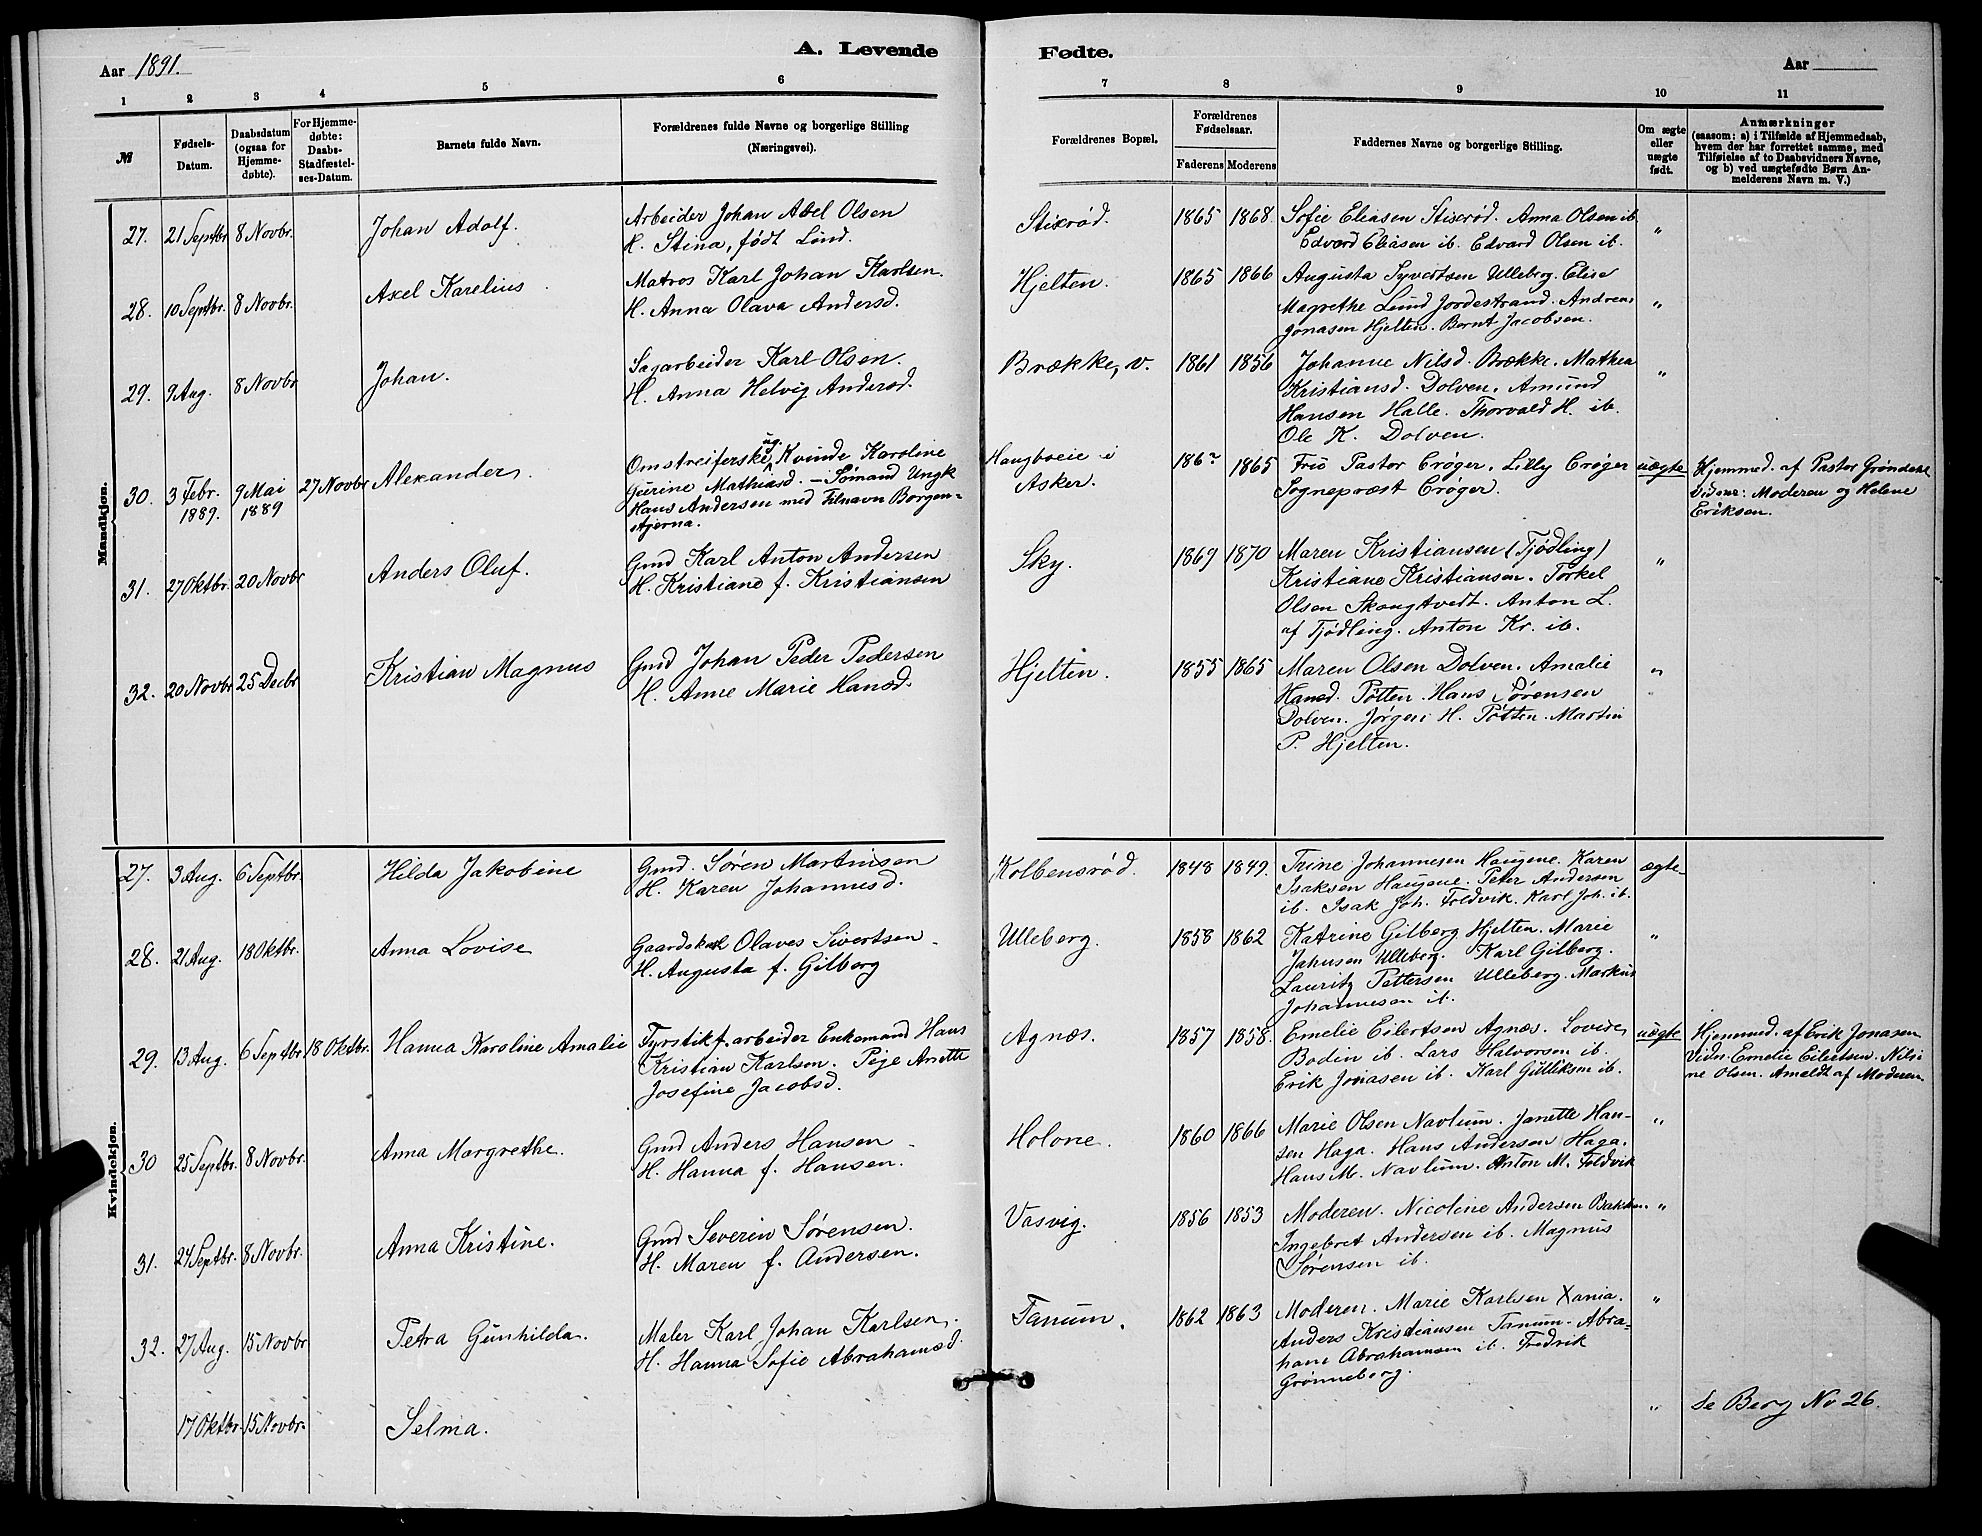 A. Levende
Aar 1891.
1 2 3 4 5 6
№
Fødsels-
Datum.
Daabsdatum
(ogsaa for
Hjemme-
døbte).
For Hjemme-
døbte:
Daabs-
Stadfæstel-
ses-Datum.
Barnets fulde Navn.
Forældrenes fulde Navne og borgerlige Stilling
(Næringsvei).
Fødte.
Aar
7 8 9 10 11
Forældrenes Bopæl.
Forældrenes
Fødselsaar.
Faderens Moderens
Faddernes Navne og borgerlige Stilling.
Om ægte
eller
uægte
født.
Anmærkninger
(saasom: a) i Tilfælde af Hjemmedaab,
hvem der har forrettet samme, med
Tilføielse af to Daabsvidners Navne,
og b) ved uægtefødte Børn An-
melderens Navn m. V.)
Mandkjøn.
27. 21 Septbr. 8 Novbr. Johan Adolf.
Arbeider Johan Axel Olsen
H. Stina, født Lind.
Stixrød. 1865 1868. Sofie Eliasen Stixrød. Anna Olsen ib
Edvard Eliasen ib. Edvard Olsen ib. "
28. 10 Septbr. 8 Novbr. Axel Karelius
Matros Karl Johan Karlsen.
H. Anna Olava Andersd.
Hjelten. 1865 1866 Augusta Syvertsen Ulleberg. Elise
Magrethe Lund Jordestrand. Andreas "
Jonasen Hjelten. Bernt Jacobsen.
29. 9 Aug. 8 Novbr Johan.
Sagarbeider Karl Olsen.
H. Anna Helvig Andersd.
Brække, v. 1861 1856 Johanne Nilsd. Brække. Mathea
Kristiansd. Dolven. Amund "
Hansen Halle. Thorvald H. ib.
Ole K. Dolven.
30. 3 Febr. 1889. 9 Mai 1889 27 Novbr Alexander
Omstreiferske, ug. Kvinde Karoline
Gurine Mathiasd. – Sømand Ungk
Hans Andersen med Tilnavn Borgen-
stjerna.
Asker. 1865 Fru Pastor Crøger. Lilly Crøger
Sognepræst Crøger.
uægte
Hjemmed. af Pastor Grøndahl
Vidner: Moderen og Helene
Eriksen.
31. 27 Oktbr. 20 Novbr Anders Oluf.
Gmd Karl Anton Andersen
H. Kristiane f. Kristiansen
Sky. 1869 1870 Maren Kristiansen (Tjødling)
Kristiane Kristiansen. Torkel
Olsen Skougtvedt. Anton L.
af Tjødling. Anton Kr. ib. "
32. 20 Novbr 25 Decbr Kristian Magnus
Gmd Johan Peder Pedersen
H. Anne Marie Hansd.
Hjelten. 1855 1865 Maren Olsen Dolven. Amalie
Hansd. Pøtten. Hans Sørensen
Dolven. Jørgen H. Pøtten. Martin
P. Hjelten. "
Kvindekjøn.
27. 3 Aug. 6 Septbr. Hilda Jakobine
Gmd. Søren Martinsen
H. Karen Johannesd.
Kolbensrød. 1848 1849. Trine Johannesen Haugene. Karen
Isaksen Haugene. Peter Andersen
ib. Isak Joh. Foldvik. Karl Joh. ib.
ægte
28. 21 Aug. 18 Oktbr. Anna Lovise
Gaardskarl Olaves Sivertsen
H. Augusta f. Gilberg
Ulleberg. 1858 1862 Katrine Gilberg Hjelten. Marie
Jahnsen Ulleberg. Karl Gilberg.
Lauritz Pettersen Ulleberg. Markus
Johannesen ib. "
29. 13 Aug. 6 Septbr 18 Oktbr. Hanna Karoline Amalie
Fyrstikf. arbeider Enkemand Hans
Kristian Karlsen. Pige Anette
Josefine Jacobsd.
Agnæs. 1857 1858. Emelie Eilertsen Agnæs. Lovise
Bodin ib. Lars Halvorsen ib.
Erik Jonasen ib. Karl Gulliksen ib.
uægte
Hjemmed. af Erik Jonasen
Vidn. Emelie Eilertsen. Nilsi-
ne Olsen. Anmeldt af Moderen.
30 25 Septbr. 8 Novbr. Anna Margrethe.
Gmd Anders Hansen
H. Hanna f. Hansen.
Holone. 1860 1866 Marie Olsen Navlum. Janette Han-
sen Haga. Hans Andersen Haga.
Hans M. Navlum. Anton M. Foldvik "
31. 24 Septbr. 8 Novbr. Anna Kristine.
Gmd Severin Sørensen.
H. Maren f. Andersen.
Vasvig. 1856 1853 Moderen. Nicoline Andersen Bakken. "
Ingebret Andersen ib. Magnus
Sørensen ib.
32. 27 Aug. 15 Novbr Petra Gunhilda.
Maler Karl Johan Karlsen.
H. Hanna Sofie Abrahamsd.
Tanum. 1862 1863 Moderen. Marie Karlsen Xania. "
Anders Kristiansen Tanum. Abra-
ham Abrahamsen ib. Fredrik
Grønneberg.
17 Oktbr. 15 Novbr. Selma.
" Se Berg No 26.